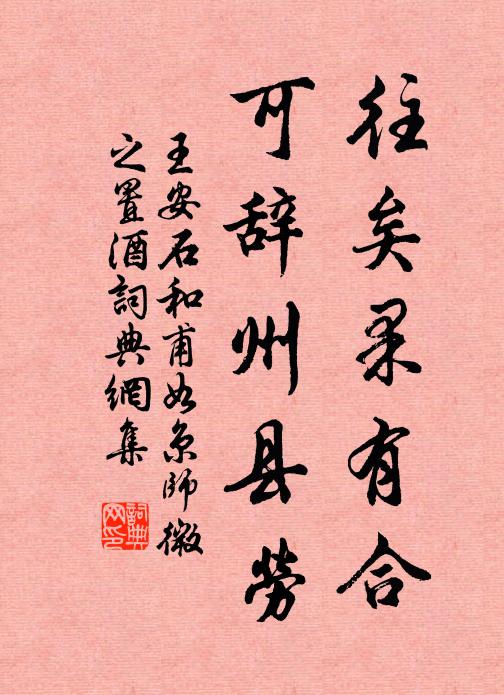 往矣果有合
可辞州县勞
王安石和甫如京師微
之置酒詞典網集
詞典网印